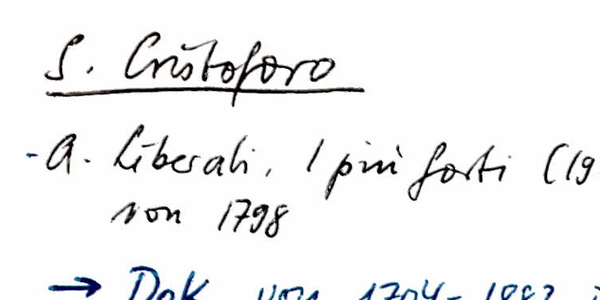 S. Cristoforo
- A. Liberali, I più forti (19
von 1798
→ Dok. von 1704-